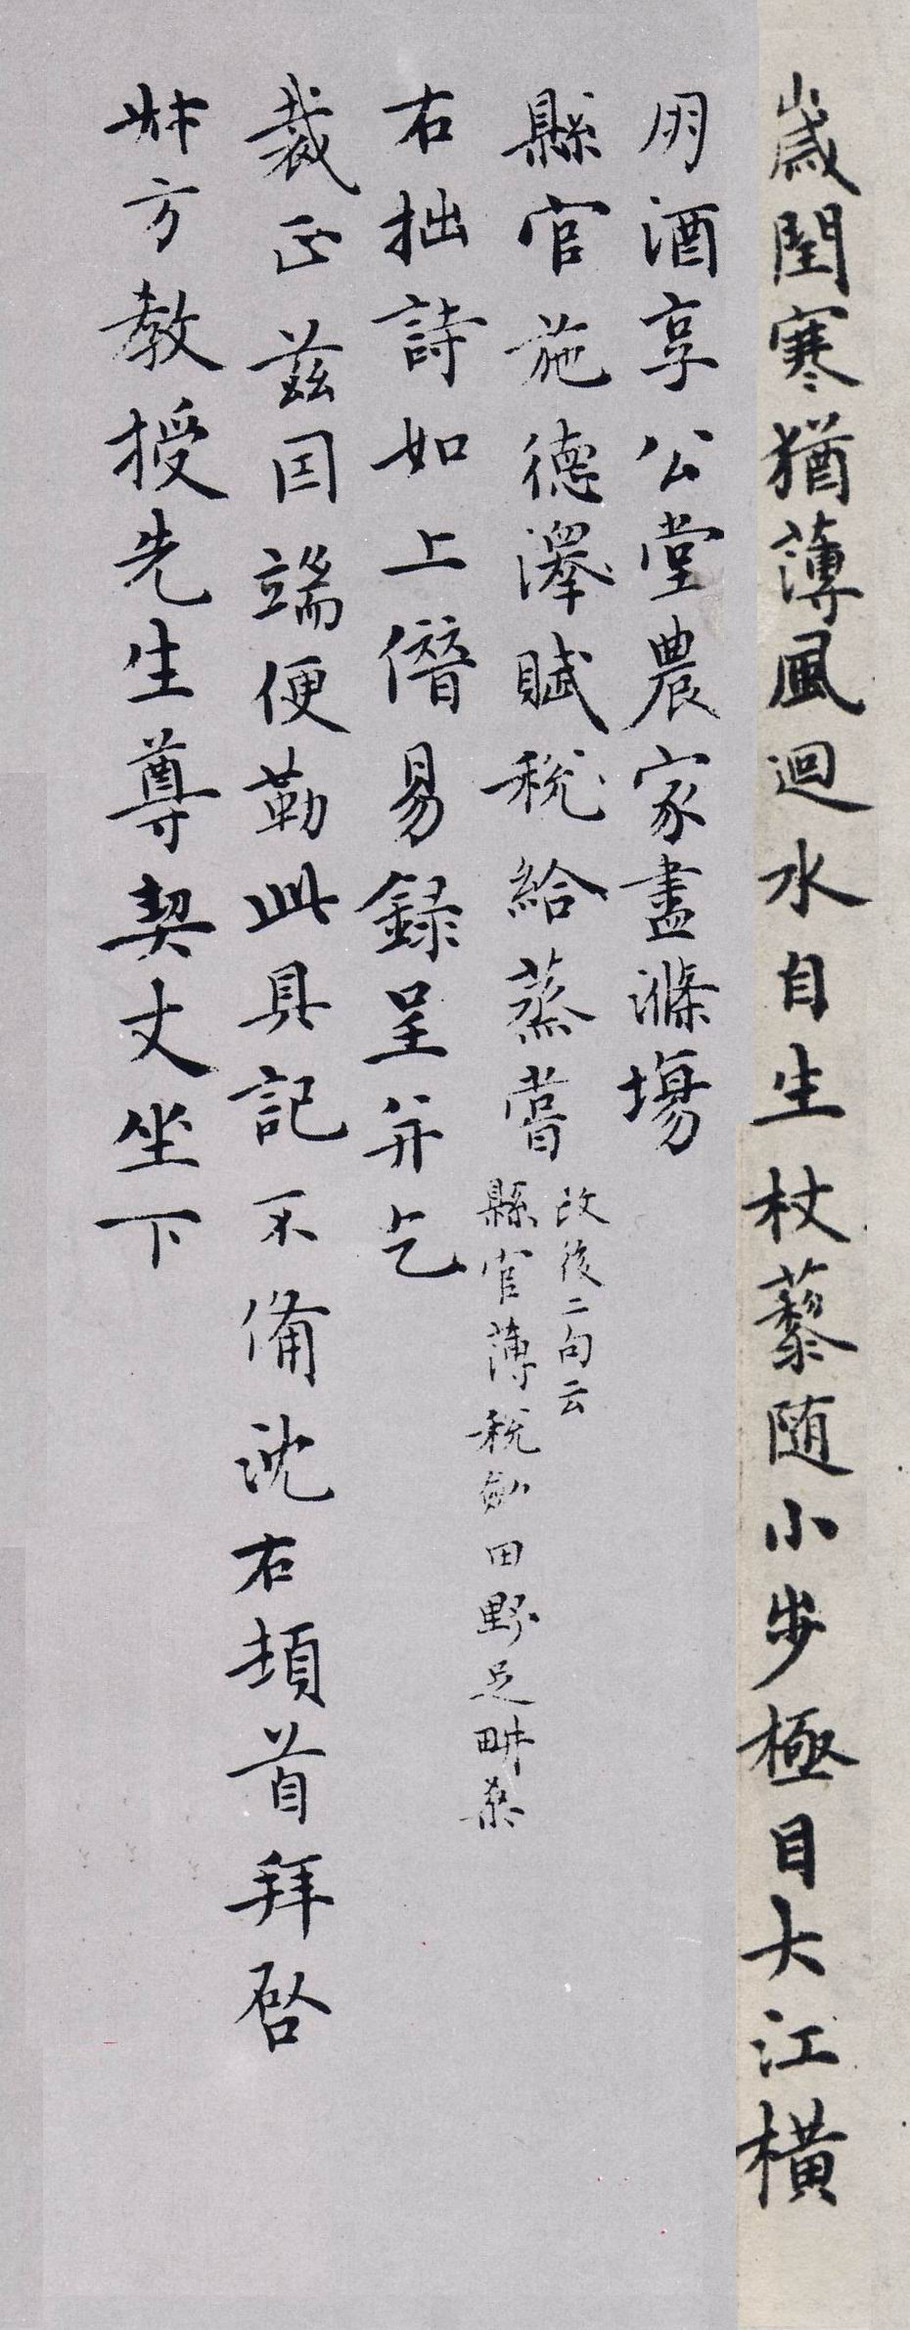 歲閏寒猶薄風迴水自生杖藜随小步極目大江橫
朋酒享公堂農家盡滌場
縣官施德澤賦稅給蒸嘗
改後二句云
縣官薄稅劍田野足畊桑
右拙詩如上僭易錄呈并乞
裁正茲因端便勒此具記不備沈右頓首拜啓
叔方教授先生尊契丈坐下